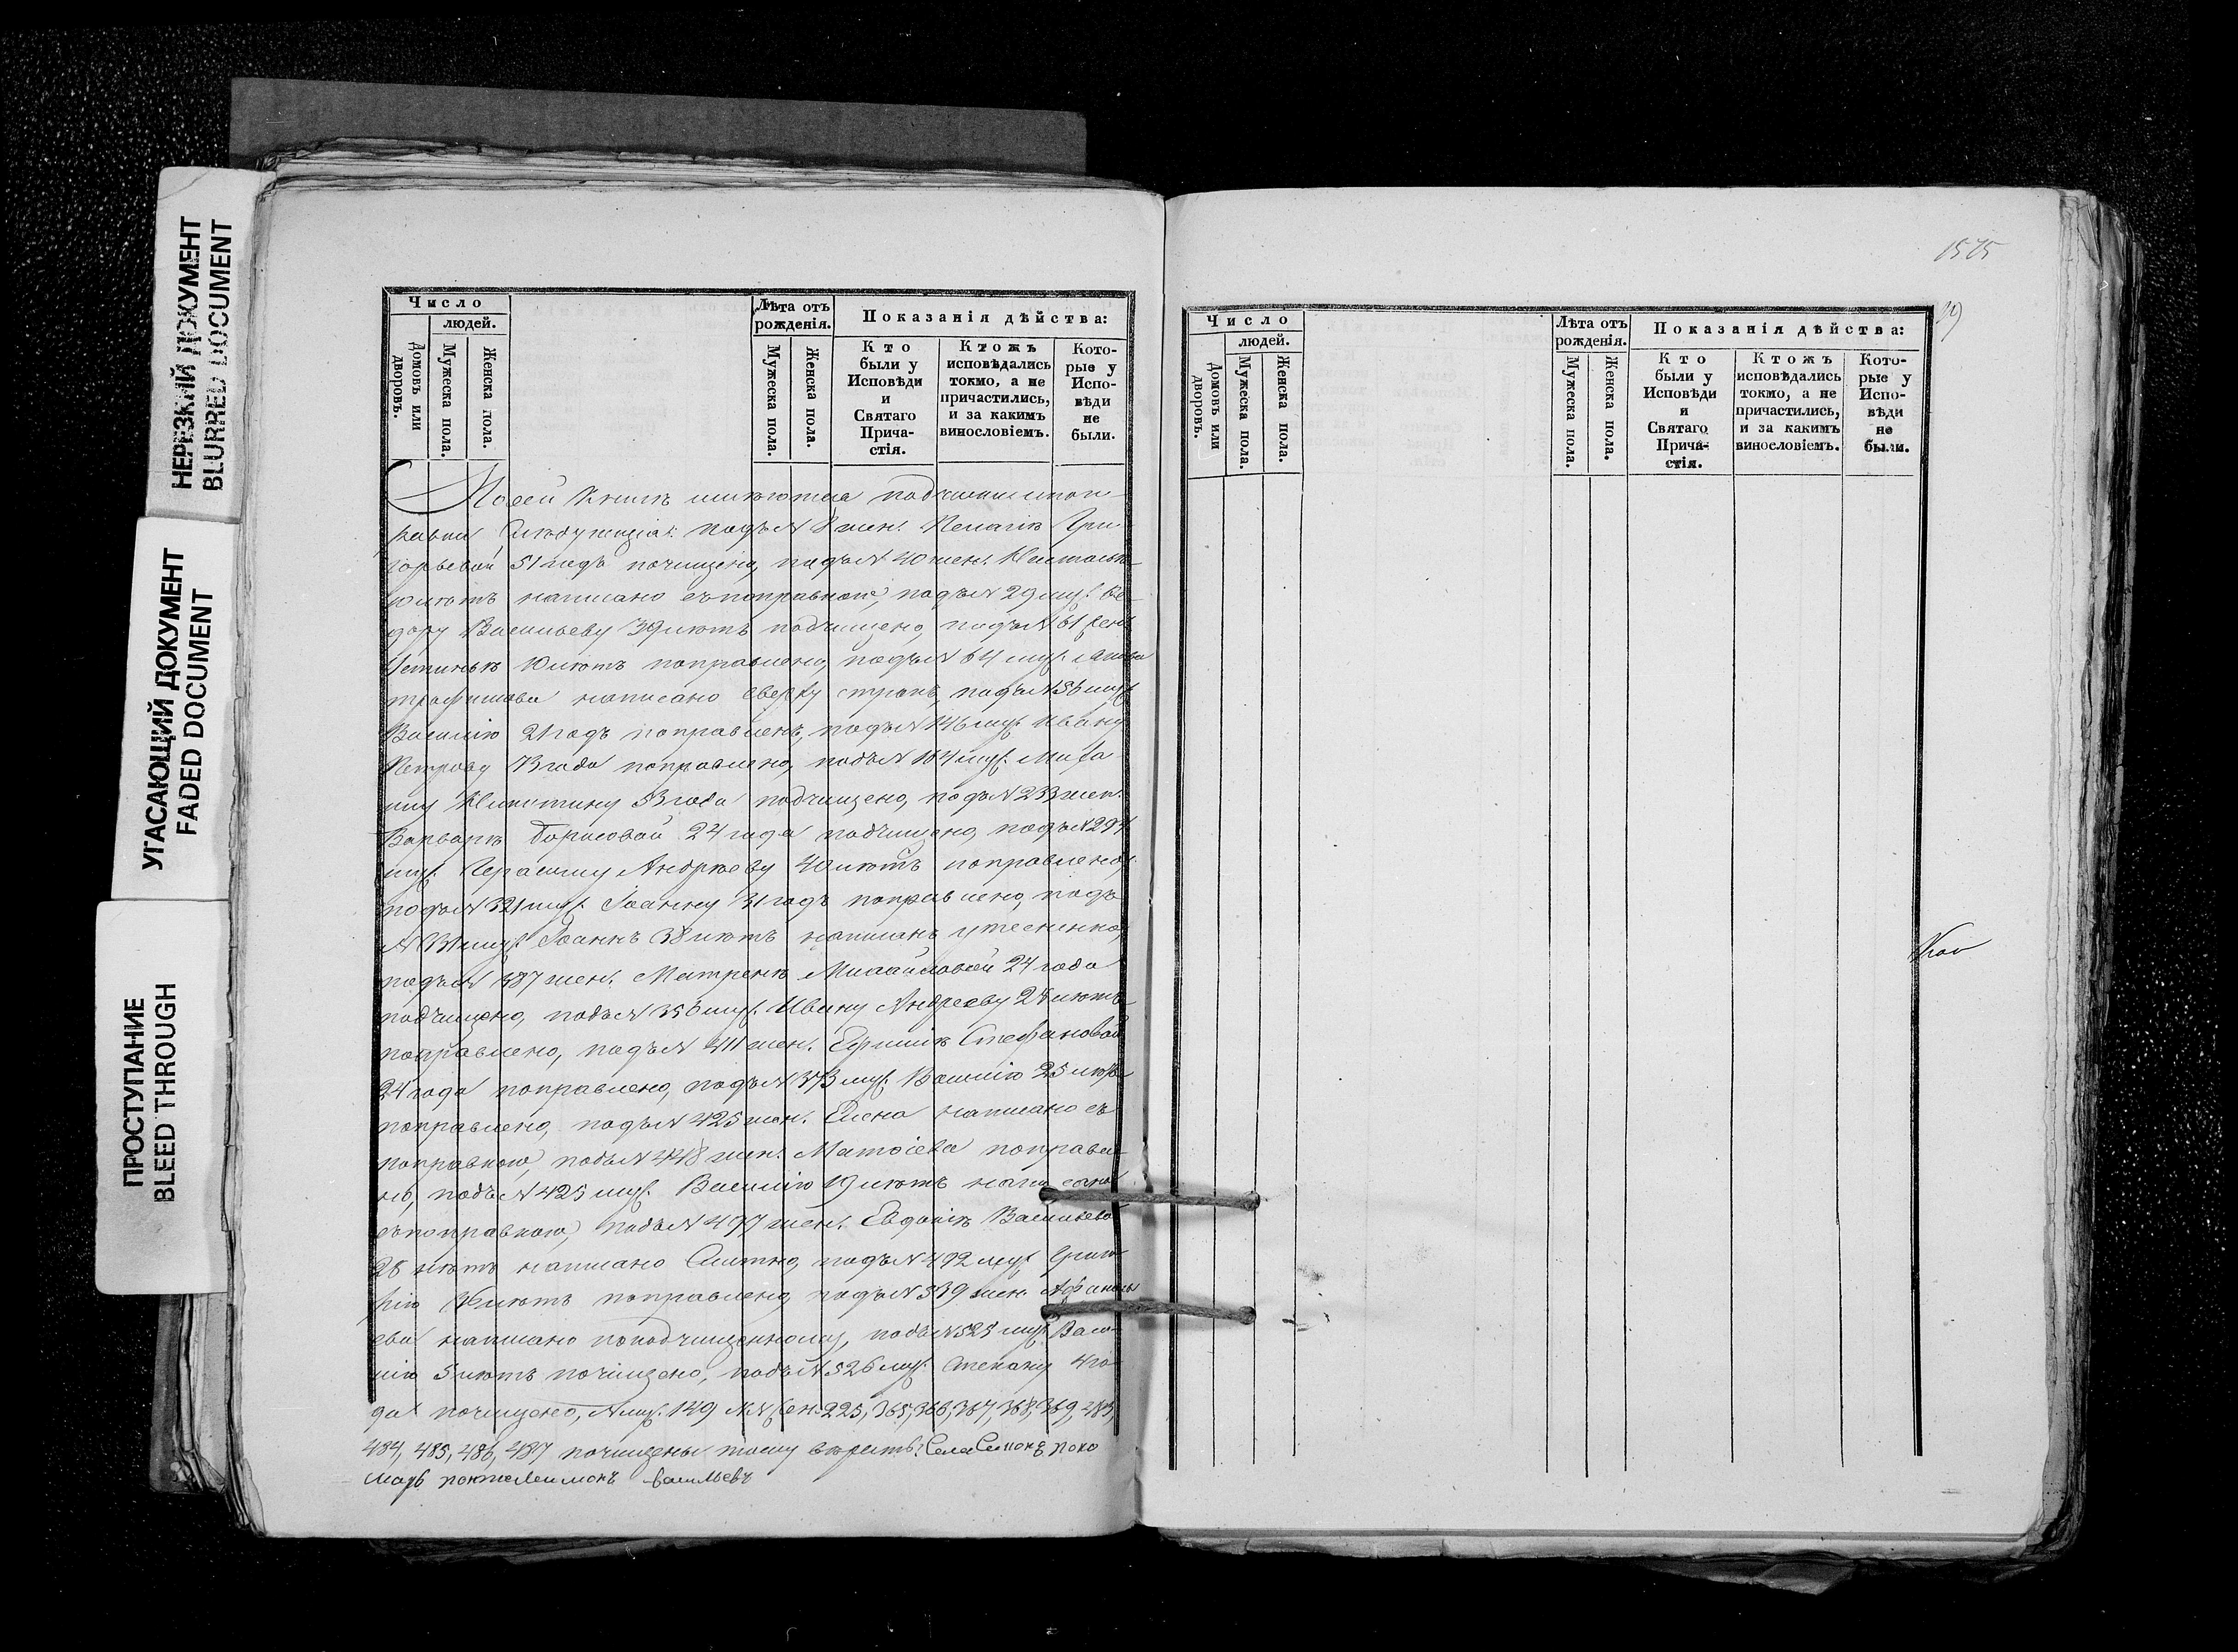 НЕРЕЗКИЙ ДОКУМЕНТ
BLURRED DOCUMENT
УГАСАЮЩИЙ ДОКУМЕНТ
FADED DOCUMENT
ПРОСТУПАНИЕ
BLEED THROUGH
Число
людей.
Домовъ или дворовъ.
Мужеска пола.
Женска пола.
Лѣта отъ рожденія.
Мужеска пола.
Женска пола.
Показанія дѣйства:
Кто были у Исповѣди и Святаго Прича-стія.
Ктожъ исповѣдались токмо, а не причастились, и за какимъ винословіемъ.
Кото-рые у Испо-вѣди не были.
книгѣ имѣются подчистки
подъ № 8 жен. Пелагіи Гри-
горьевой 51 годъ почищено, подъ № 40 жен.
лѣтъ написано съ поправкою, подъ № 29 муж.
дору Васильеву 39 лѣтъ подчищено, подъ № 61 жен.
лѣтъ поправлено, подъ № 64 муж.
трофимова написано сверху строкъ, подъ № 56 муж.
Василію 21 годъ поправленъ, подъ № 146 муж. Ивану
Петрову 73 года поправлено, подъ № 164 муж.
53 года подчищено, подъ № 233 жен.
Варварѣ Борисовой 24 года подчищено, подъ № 297
муж. Герасиму Андрѣеву 40 лѣтъ поправлено,
подъ № 321 муж. Іоанну 31 годъ поправлено, подъ
муж. Іоаннъ 38 лѣтъ написанъ
подъ № 387 жен. Матренѣ Михайловой 24 года
подчищено, подъ № 356 муж. Ивану Андрееву лѣтъ
поправлено, подъ № 411 жен. Стефановой
24 года поправлено, подъ № 373 муж. Василію 25 лѣтъ
поправлено, подъ № 425 жен. Елена написано съ
поправкою, подъ № 448 жен. Матвіева поправле-
но, подъ № 425 муж. Василію 19 лѣтъ написано
съ поправкою, подъ № 477 жен. Евдокіи Васильевой
28 лѣтъ написано слитно, подъ № 492 муж.
лѣтъ поправлено, подъ № 539 жен. Афанась
ева написано поподчищенному, подъ № 525 муж. Васи-
лію 5 лѣтъ почищено, подъ № 526 муж. Степану 4 го-
да почищено, № муж. 149 №№ жен. 225, 365, 366, 367, 368, 369, 483,
484, 485, 486, 487 почищены тому вѣрить. Села поно
марь васильевъ
1575
Число
людей.
Домовъ или дворовъ.
Мужеска пола.
Женска пола.
Лѣта отъ рожденія.
Мужеска пола.
Женска пола.
Показанія дѣйства:
Кто были у Исповѣди и Святаго Прича-стія.
Ктожъ исповѣдались токмо, а не причастились, и за какимъ винословіемъ.
Кото-рые у Испо-вѣди не были.